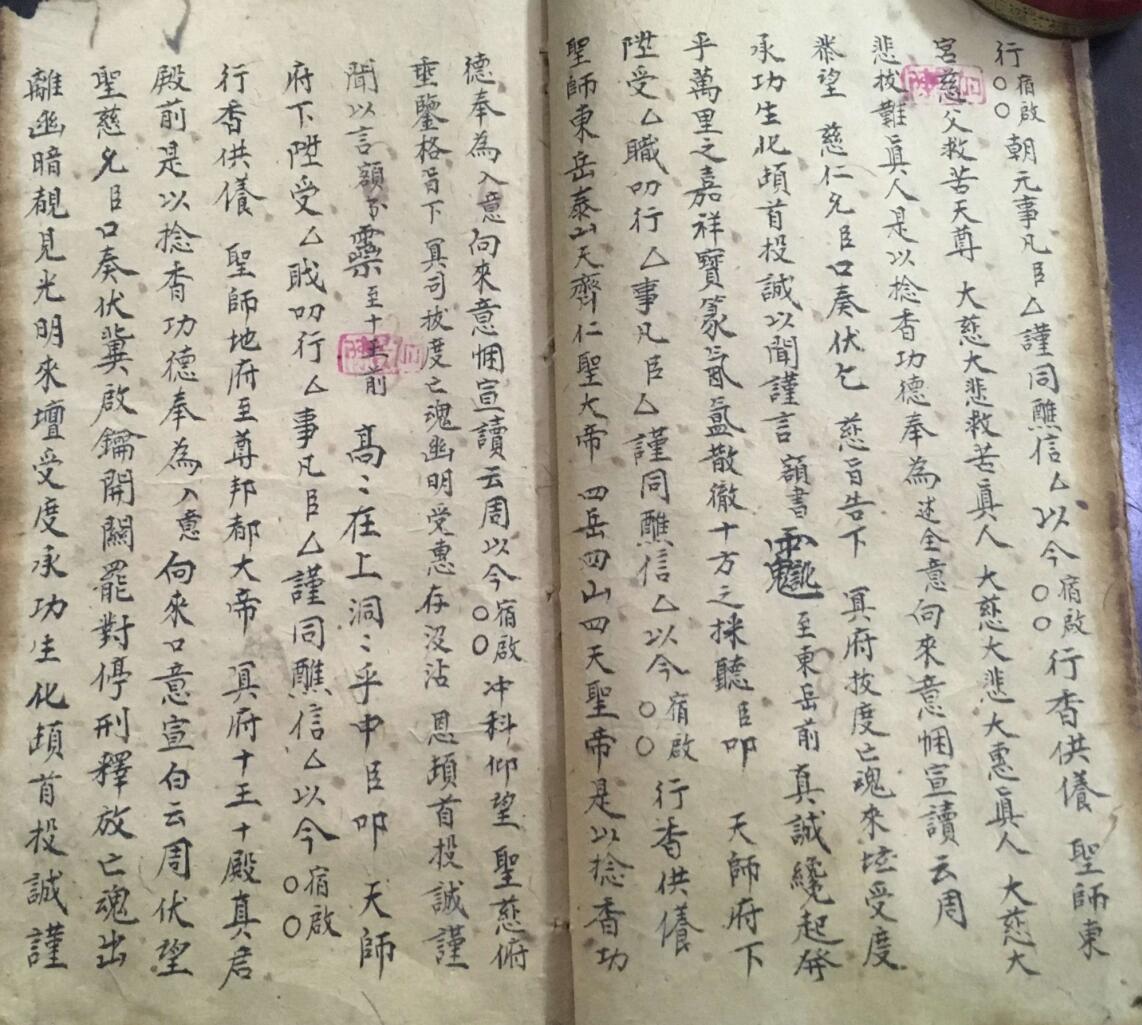 行宿啟〇〇朝元事凡臣厶謹同醮信厶以今宿啟〇〇行香供養 聖師東
宮慈父救苦天尊 大慈大悲救苦真人 大慈大悲大惠真人 大慈大
悲拔難真人是以捻香功德奉為述全意向來意悃宣讀云周
恭望 慈仁允臣口奏伏乞 慈旨告下 冥府拔度亡魂來壇受度
承功生化頓首投誠以聞謹言 額書 至東岳前 真誠纔起
乎萬里之嘉祥寶篆氤氳散徹十方之採聽臣叩 天師府下
陞受厶職叨行厶事凡臣厶謹同醮信厶以今宿啟〇〇行香供養
聖師東岳泰山天齊仁聖大帝 四岳四山四天聖帝是以捻香功
德奉為入意向來意悃宣讀云周以今宿啟〇〇冲科仰望 聖慈俯
垂鑒格旨下冥司拔度亡魂幽明受惠存沒沾 恩頓首投誠謹
聞以言額 至十王前 高〻在上洞〻乎中臣叩 天師
府下陞受厶職叨行厶事凡臣厶謹同醮信厶以今宿啟〇〇
行香供養 聖師地府至尊邦都大帝 冥府十王十殿真君
殿前是以捻香功德奉為入意向來口意宣白云周伏望
聖慈允臣口奏伏冀啟鑰開關罷對停刑釋放亡魂出
離幽暗覩見光明來壇受度承功生化頓首投誠謹